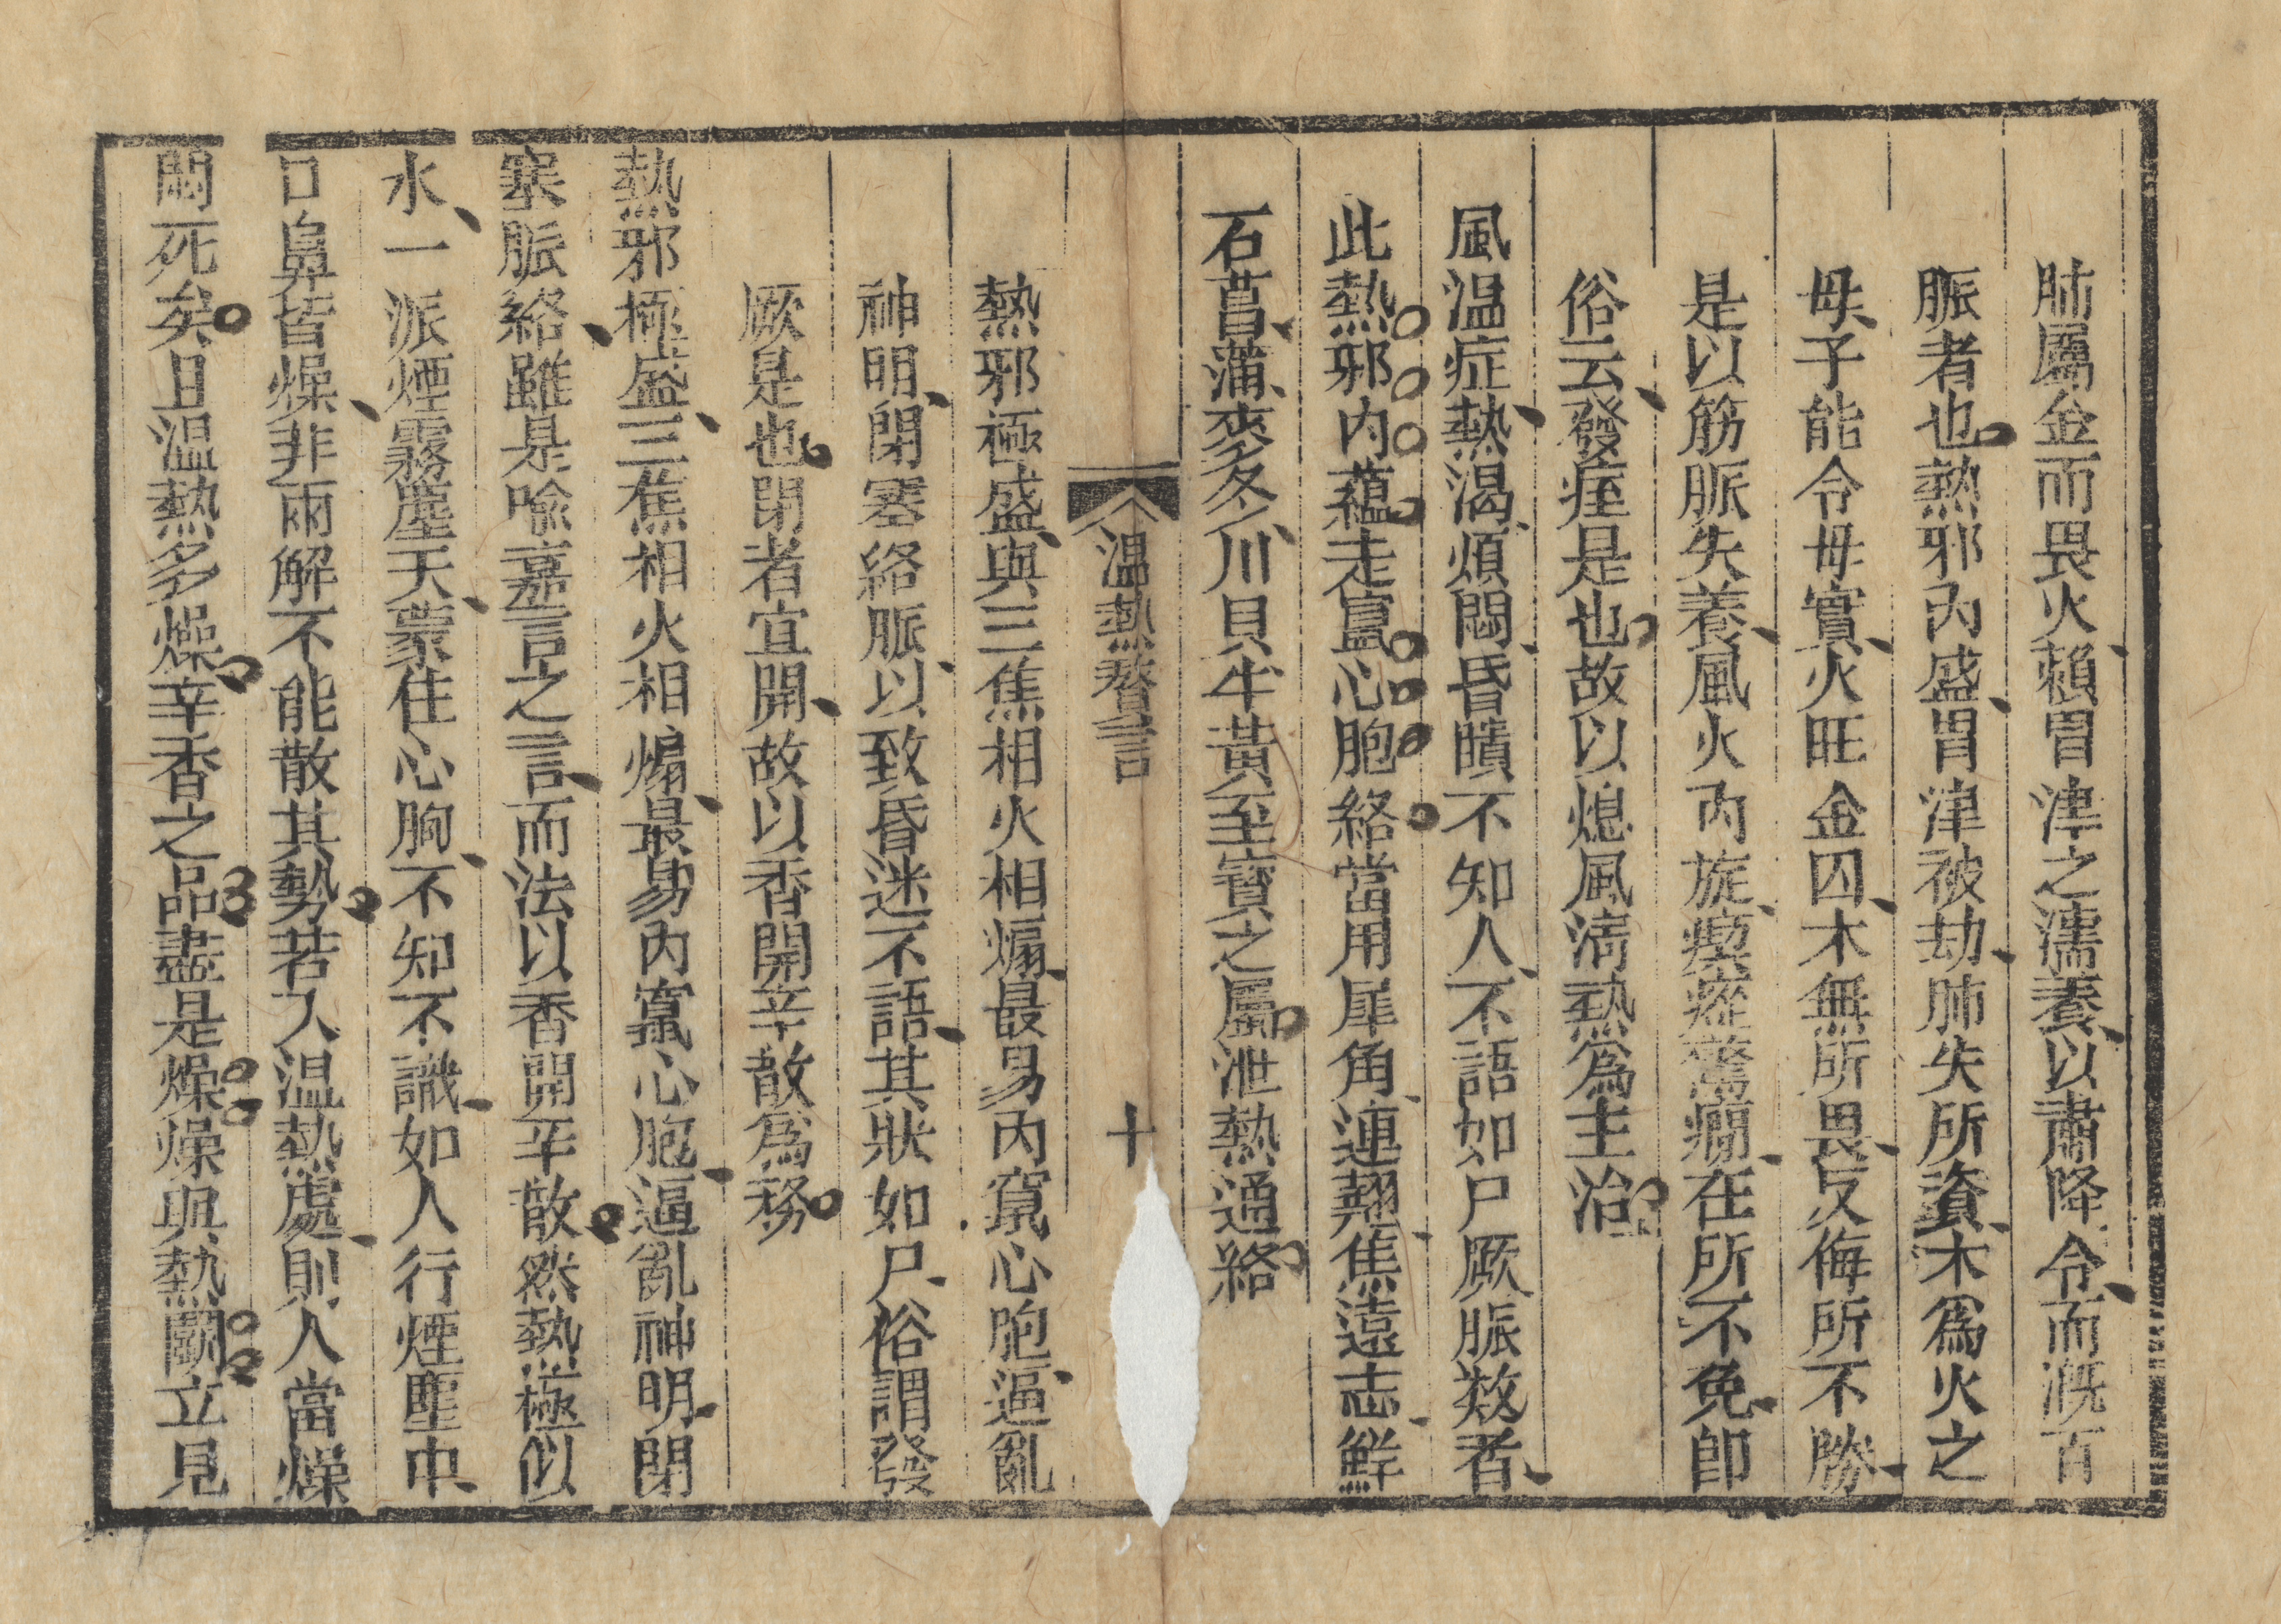 肺屬金而畏火賴胃津之濡養以肅降令而溉百
脈者也熱邪內盛胃津被劫肺失所資木爲火之
母子能令母實火旺金囚木無所畏反侮所不勝
是以筋脈失養風火內旋瘈瘲驚癇在所不免卽
俗云發痙是也故以熄風清熱爲主治
風温症熱渴煩悶昏瞶不知人不語如尸厥脈數者
此熱邪內蘊走竄心胞絡當用犀角連翹焦遠志鮮
石菖蒲麥冬川貝牛黃至寶之屬泄熱通絡
温熱贅言
十
熱邪極盛與三焦相火相煽最易內竄心胞逼亂
神明閉塞絡脈以致昏迷不語其狀如尸俗謂發
厥是也閉者宜開故以香開辛散爲務
熱邪極盛三焦相火相煽最易內竄心胞逼亂神明閉
塞脈絡雖是喻嘉言之言而法以香開辛散然熱極似
水一派煙霧塵天蒙住心胸不知不識如人行煙塵中
口鼻皆燥非雨解不能散其勢若入温熱處則人當燥
悶死矣且温熱多燥辛香之品盡是燥燥與熱鬭立見